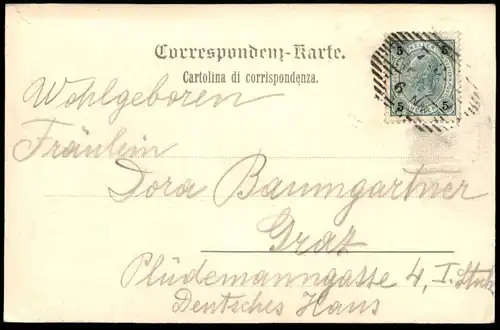 Correspondenz-Karte.
Cartolina di corrispondenza.
5 5
5 5
Wohlgeboren
Fräulein
Dora Baumgartner
Graz
Plüdemanngasse 4, I. Stock
Deutsches Haus